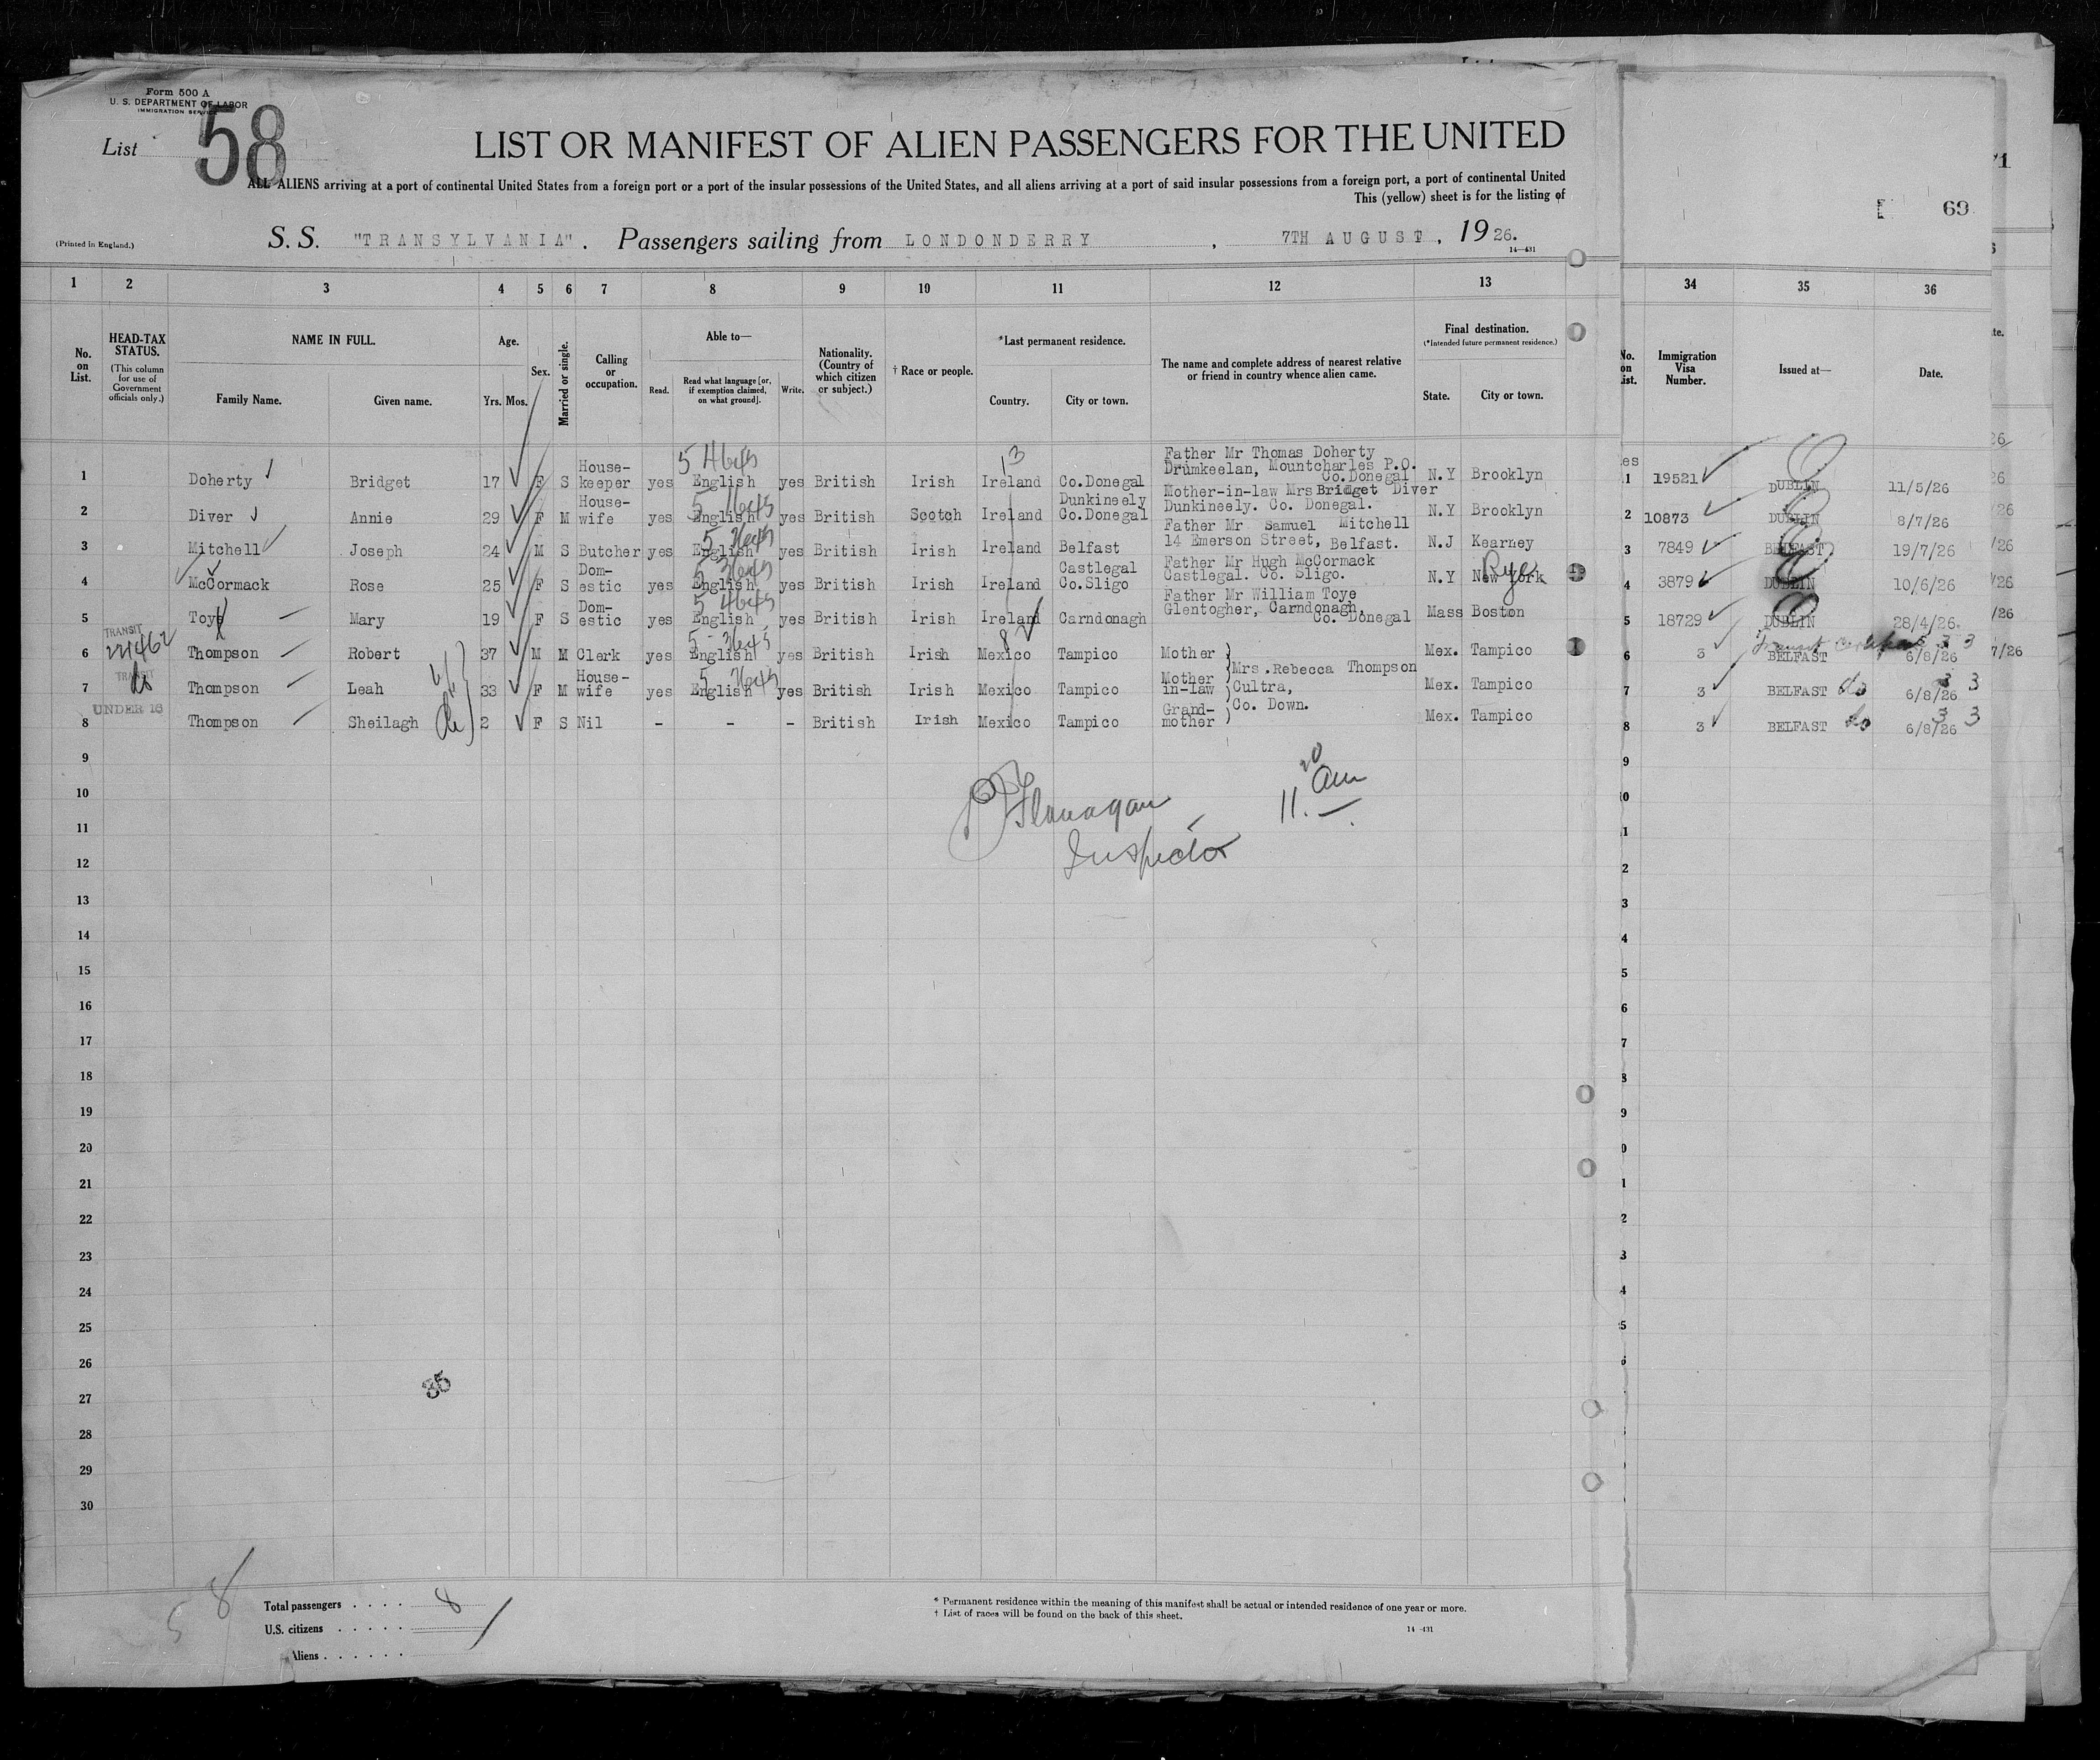 Form 500 A
U. S. DEPARTMENT OF LABOR
IMMIGRATION SERVICE
List 58
LIST OR MANIFEST OF ALIEN PASSENGERS FOR THE UNITED
ALL ALIENS arriving at a port of continental United States from a foreign port or a port of the insular possessions of the United States, and all aliens arriving at a port of said insular possessions from a foreign port, a port of continental United
This (yellow) sheet is for the listing of
69
(Printed in England.)
S. S. "TRANSYLVANIA". Passengers sailing from LONDONDERRY, 7TH AUGUST, 1926.
14—431
1 2 3 4 5 6 7 8 9 10 11 12 13 34 35 36
No. on List.
HEAD-TAX STATUS.
(This column for use of Government officials only.)
NAME IN FULL.
Family Name. Given name.
Age.
Yrs. Mos.
Sex.
Married or single.
Calling or occupation.
Able to—
Read. Read what language [or, if exemption claimed, on what ground]. Write.
Nationality. (Country of which citizen or subject.)
† Race or people.
*Last permanent residence.
Country. City or town.
The name and complete address of nearest relative or friend in country whence alien came.
Final destination.
(*Intended future permanent residence.)
State. City or town.
No. on List.
Immigration Visa Number.
Issued at—
Date.
1 Doherty Bridget 17 F S House-keeper yes English yes British Irish Ireland Co.Donegal Father Mr Thomas Doherty Drumkeelan, Mountcharles P.O. Co.Donegal N.Y Brooklyn 1 19521 DUBLIN 11/5/26
2 Diver Annie 29 F M House-wife yes English yes British Scotch Ireland Dunkineely Co.Donegal Mother-in-law Mrs Bridget Diver Dunkineely. Co. Donegal. N.Y Brooklyn 2 10873 DUBLIN 8/7/26
3 Mitchell Joseph 24 M S Butcher yes English yes British Irish Ireland Belfast Father Mr Samuel Mitchell 14 Emerson Street, Belfast. N.J Kearney 3 7849 BELFAST 19/7/26
4 McCormack Rose 25 F S Dom-estic yes English yes British Irish Ireland Castlegal Co.Sligo Father Mr Hugh McCormack Castlegal. Co. Sligo. N.Y New York Rye 4 3879 DUBLIN 10/6/26
5 Toye Mary 19 F S Dom-estic yes English yes British Irish Ireland Carndonagh Father Mr William Toye Glentogher, Carndonagh, Co. Donegal Mass Boston 5 18729 DUBLIN 28/4/26
6 TRANSIT Thompson Robert 37 M M Clerk yes English yes British Irish Mexico Tampico Mother Mex. Tampico 6 3 BELFAST 6/8/26
7 TRANSIT Thompson Leah 33 F M House-wife yes English yes British Irish Mexico Tampico Mother in-law Mrs.Rebecca Thompson Cultra, Co. Down. Mex. Tampico 7 3 BELFAST do 6/8/26
8 UNDER 16 Thompson Sheilagh 2 F S Nil - - - British Irish Mexico Tampico Grand-mother Mex. Tampico 8 3 BELFAST do 6/8/26
9
10
11
12
13
14
15
16
17
18
19
20
21
22
23
24
25
26
27
28
29
30
Flanagan
Inspector
11.20 am
35
58
Total passengers . . . . 8
U.S. citizens . . . . .
Aliens . . . . . .
* Permanent residence within the meaning of this manifest shall be actual or intended residence of one year or more.
† List of races will be found on the back of this sheet.
14-431